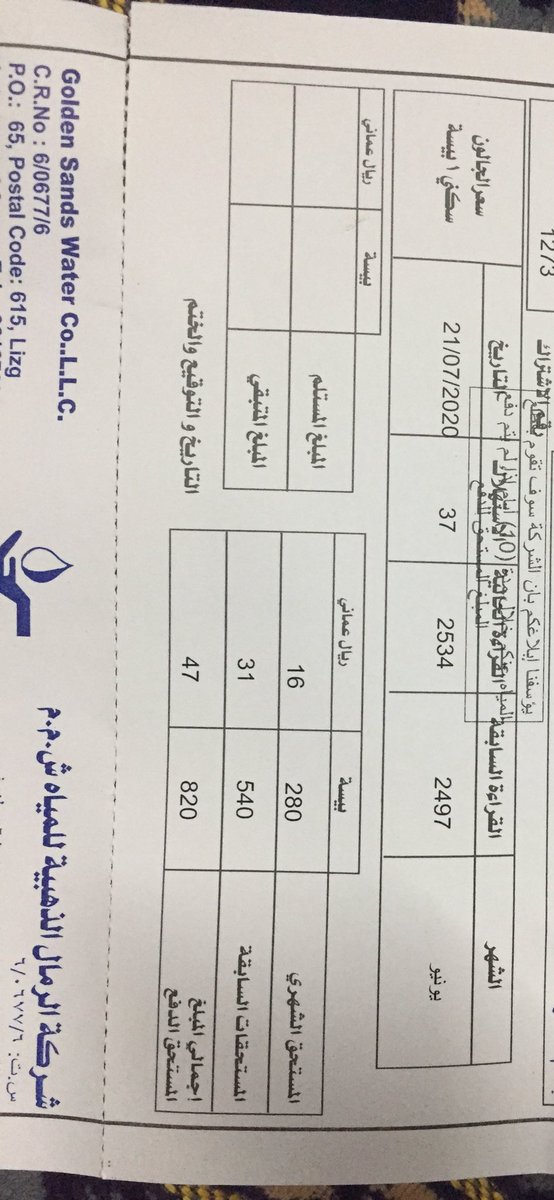 1273
رقم الاشتراك
يؤسفنا ابلاغكم بان الشركة سوف تقوم بقطع
المبلغ المستحق للدفع
الشهر
القراءة السابقة
القراءة الحالية
الاستهلاك
التاريخ
سعر الجالون
سكني ١ بيسة
يونيو
2497
2534
37
21/07/2020
بيسة
ريال عماني
المستحق الشهري
280
16
المستحقات السابقة
540
31
اجمالي المبلغ
المستحق الدفع
820
47
بيسة
ريال عماني
المبلغ المستلم
المبلغ المتبقي
التاريخ و التوقيع والختم
Golden Sands Water Co..L.L.C.
C.R.No : 6/0677/6
P.O.: 65, Postal Code: 615, Lizg
شركة الرمال الذهبية للمياه ش.م.م
س.ت: ٦/٠٦٧٧/٦